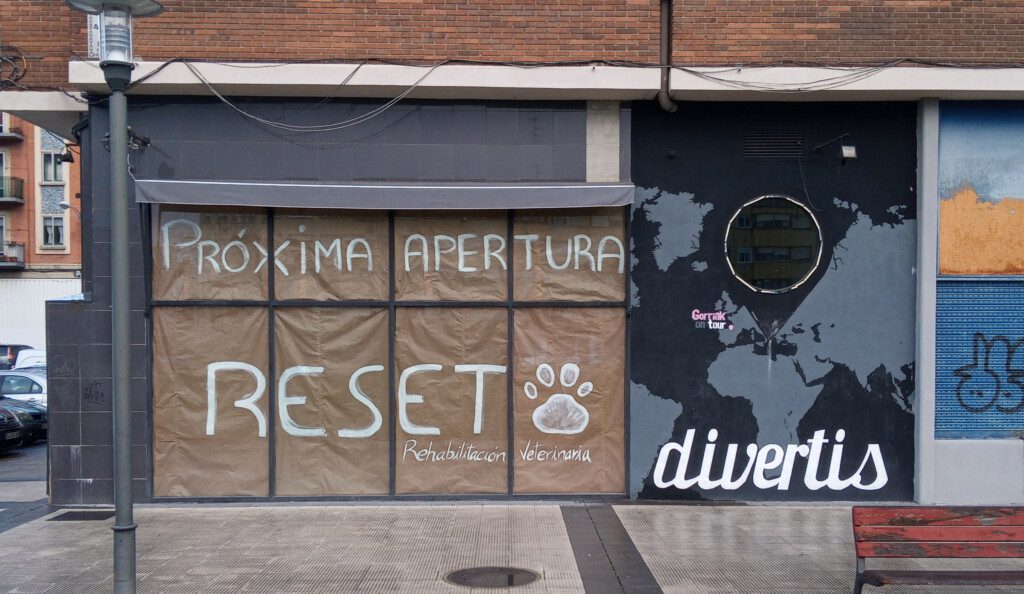 PRÓXIMA APERTURA
RESET
Rehabilitación Veterinaria
Gorriak
on tour
divertis